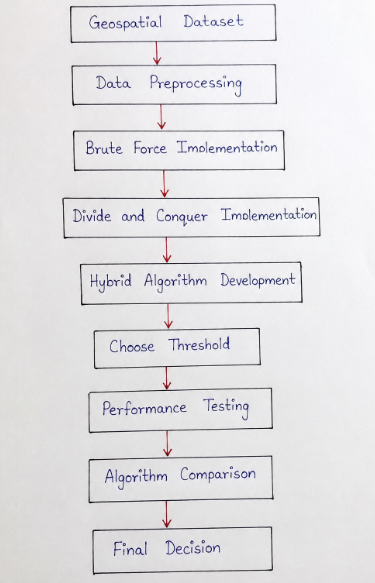 Geospatial Dataset
Data Preprocessing
Brute Force Imolementation
Divide and Conquer Imolementation
Hybrid Algorithm Development
Choose Threshold
Performance Testing
Algorithm Comparison
Final Decision